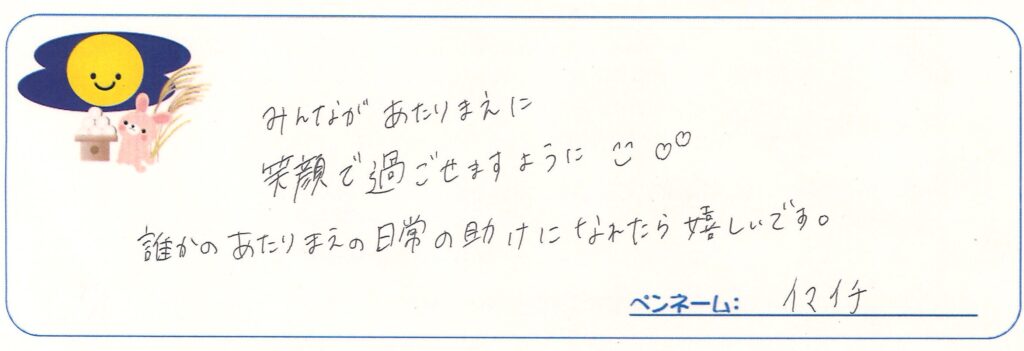 みんながあたりまえに
笑顔で過ごせますように
誰かのあたりまえの日常の助けになれたら嬉しいです。
ペンネーム: イマイチ